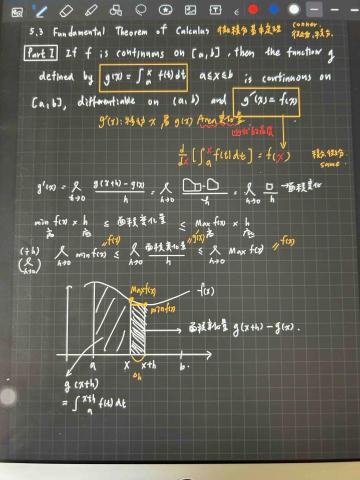 5.3 Fundamental Theorem of Calculus 微積分基本定理 connect 微分, 積分.
Part I If f is continuous on [a,b], then the function g
defined by g(x) = ∫ₐˣ f(t)dt a≤x≤b is continuous on
[a,b], differentiable on (a,b) and g'(x) = f(x)
g'(x): Area 變化量
d/dx [∫ₐˣ f(t)dt] = f(x)
same.
g'(x) = lim h→0 g(x+h) - g(x) / h = lim h→0 / h = lim h→0 / h
min f(x) × h ≤ 面積變化量 ≤ Max f(x) × h
高 底 高 底
(÷h) f(x) g'(x) f(x)
(lim h→0) lim h→0 min f(x) ≤ lim h→0 面積變化量 / h ≤ lim h→0 Max f(x)
Maxf(x) f(x)
minf(x)
面積變化量 g(x+h) - g(x).
a x x+h b
Δh
g(x+h)
= ∫ₐˣ⁺ʰ f(t)dt